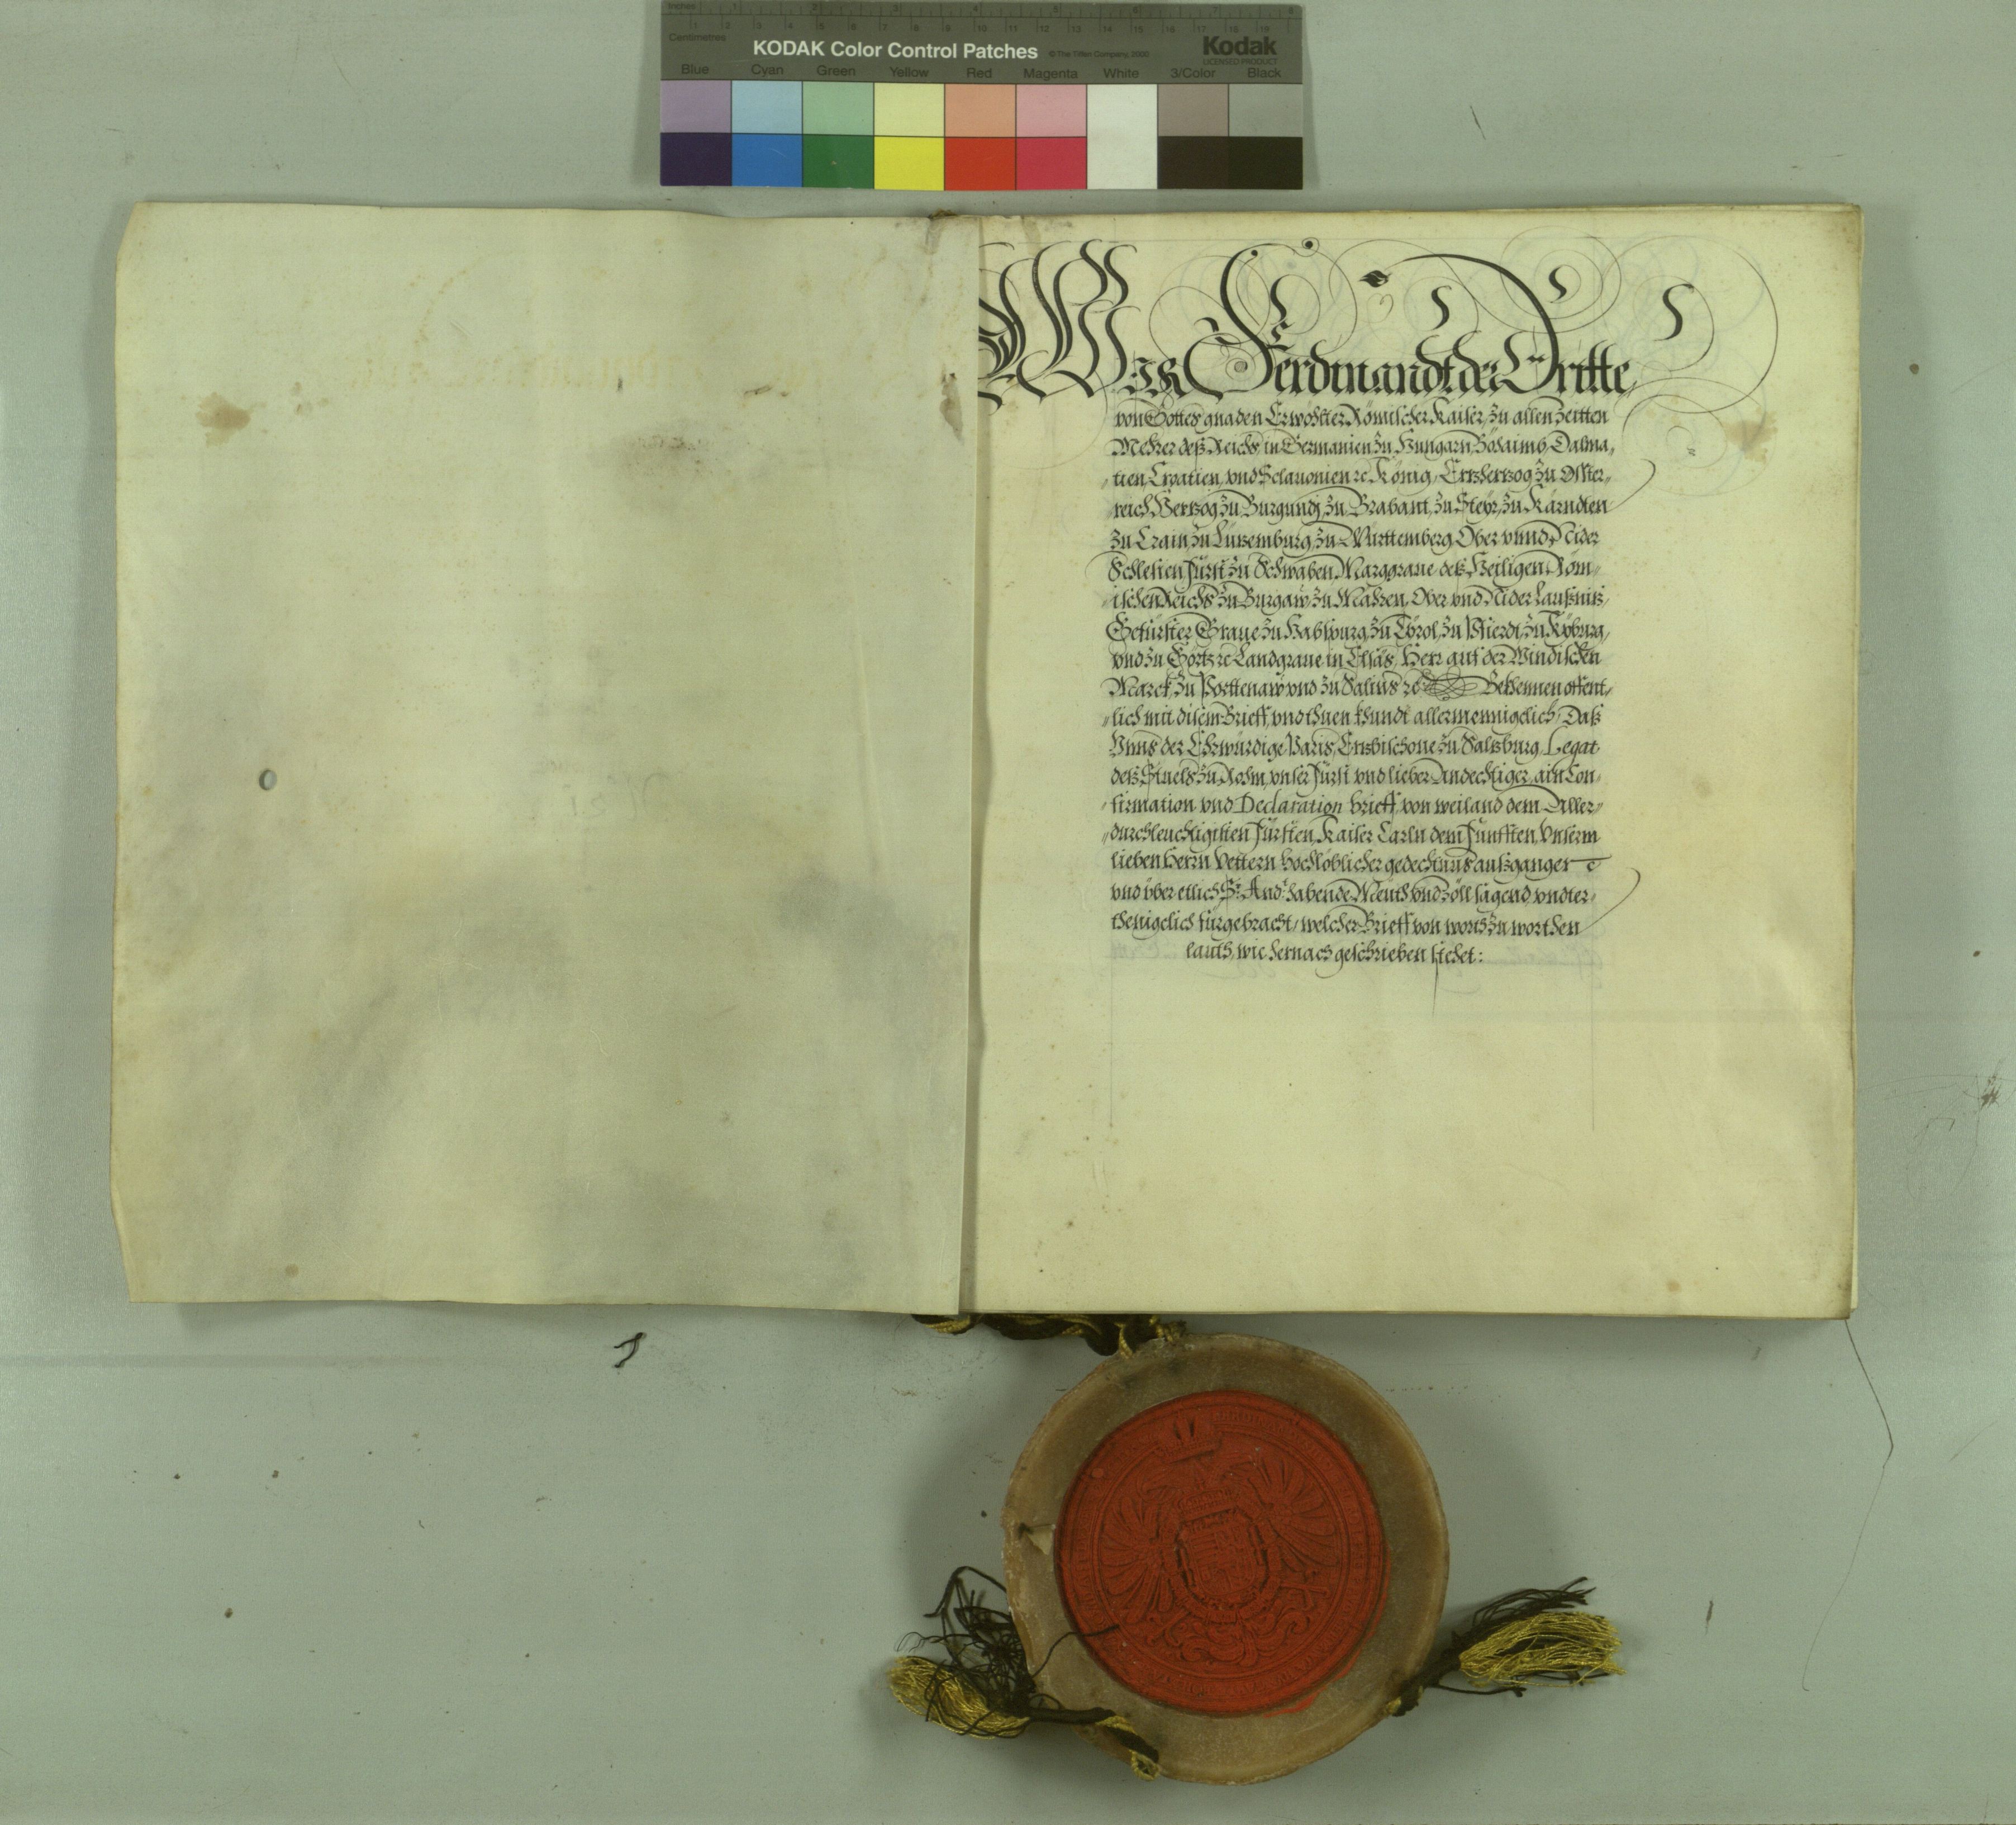 Inches 1 2 3 4 5 6 7 8
Centimetres 1 2 3 4 5 6 7 8 9 10 11 12 13 14 15 16 17 18 19
KODAK Color Control Patches © The Tiffen Company, 2000 Kodak
LICENSED PRODUCT
Blue Cyan Green Yellow Red Magenta White 3/Color Black
WIR Ferdinandt der Dritte
von Gottes gnaden Erwöhlter Römischer Kaiser, zu allen Zeitten
Mehrer deß Reichs, in Germanien, zu Hungarn, Böhaimb, Dalma„
„tien, Croatien, und Sclavonien ꝛc König, Ertzhertzog zu Öster„
„reich, Hertzog zu Burgundj, zu Brabant, zu Steyr, zu Kärndten
zu Crain, zu Lützemburg, zu Württemberg, Ober unnd Nider
Schlesien, Fürst zu Schwaben, Marggrave deß Heiligen Röm„
„ischen Reichs, zu Burgaw, zu Mähren, Ober und Nider Laußnitz,
Gefürster Grave zu Habspurg, zu Tyrol, zu Pfierdt, zu Kyburg,
und zu Görtz ꝛc Landgrave in Elsäs, Herr auf der Windischen
Marck, zu Porttenaw und zu Salins ꝛc Bekhennen offent„
„lich mit disem Brieff, und thuen khundt allermennigclich, Daß
Unns der Ehrwürdige Paris, Ertzbischove zu Saltzburg, Legat
deß Stuels zu Rohm, unser Fürst und lieber Andechtiger, ain Con„
„firmation und Declaration brieff, von weiland dem Aller„
„durchleuchtigisten Fürsten, Kaiser Carln dem Fünfften, Unserm
lieben Herrn Vettern hochlöblicher gedechtnus außganger
und über etlich Sr. Andt. habende Meüth und Zöll sagend, undter„
thenigclich fürgebracht, welcher Brieff von wortt zu wortten
lauth, wie hernach geschrieben stehet: